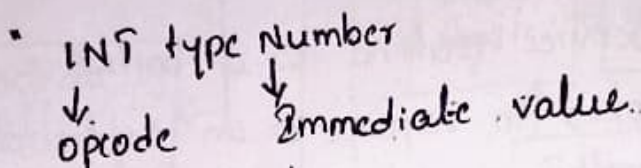 • INT type Number
↓ ↓
opcode Immediate value.